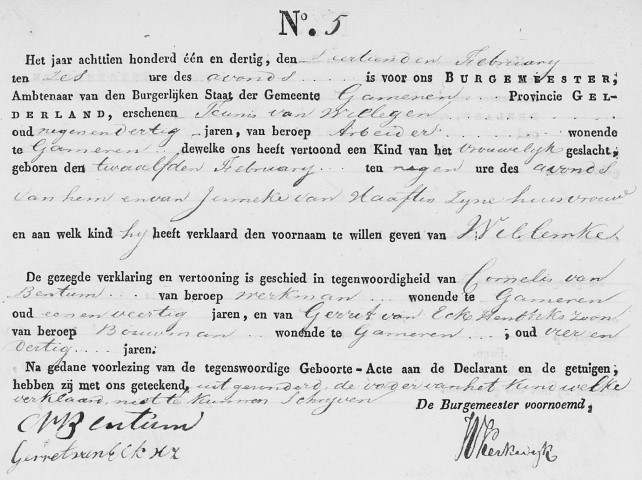 N°. 5
Het jaar achttien honderd één en dertig, den Veertienden February
ten zes ure des avonds is voor ons BURGEMEESTER,
Ambtenaar van den Burgerlijken Staat der Gemeente Gameren Provincie GEL-
DERLAND, erschenen Teunis van Willegen
oud negenendertig jaren, van beroep Arbeider wonende
te Gameren dewelke ons heeft vertoond een Kind van het vrouwelyk geslacht,
geboren den twaalfden February ten negen ure des avonds
van hem en van Jenneke van Haaften Zyne huisvrouw
en aan welk kind hy heeft verklaard den voornaam te willen geven van Willemke
De gezegde verklaring en vertooning is geschied in tegenwoordigheid van Cornelis van
Bentum van beroep werkman wonende te Gameren
oud eenenveertig jaren, en van Gerrit van Eck Hendriks zoon
van beroep Bouwman wonende te Gameren ; oud vier en
dertig jaren.
Na gedane voorlezing van de tegenswoordige Geboorte-Acte aan de Declarant en de getuigen,
hebben zij met ons geteekend, uitgezonderd de vader van het Kind welke
verklaard niet te kunnen Schryven
De Burgemeester voornoemd,
CVBentum
Gerret van Eck HZ